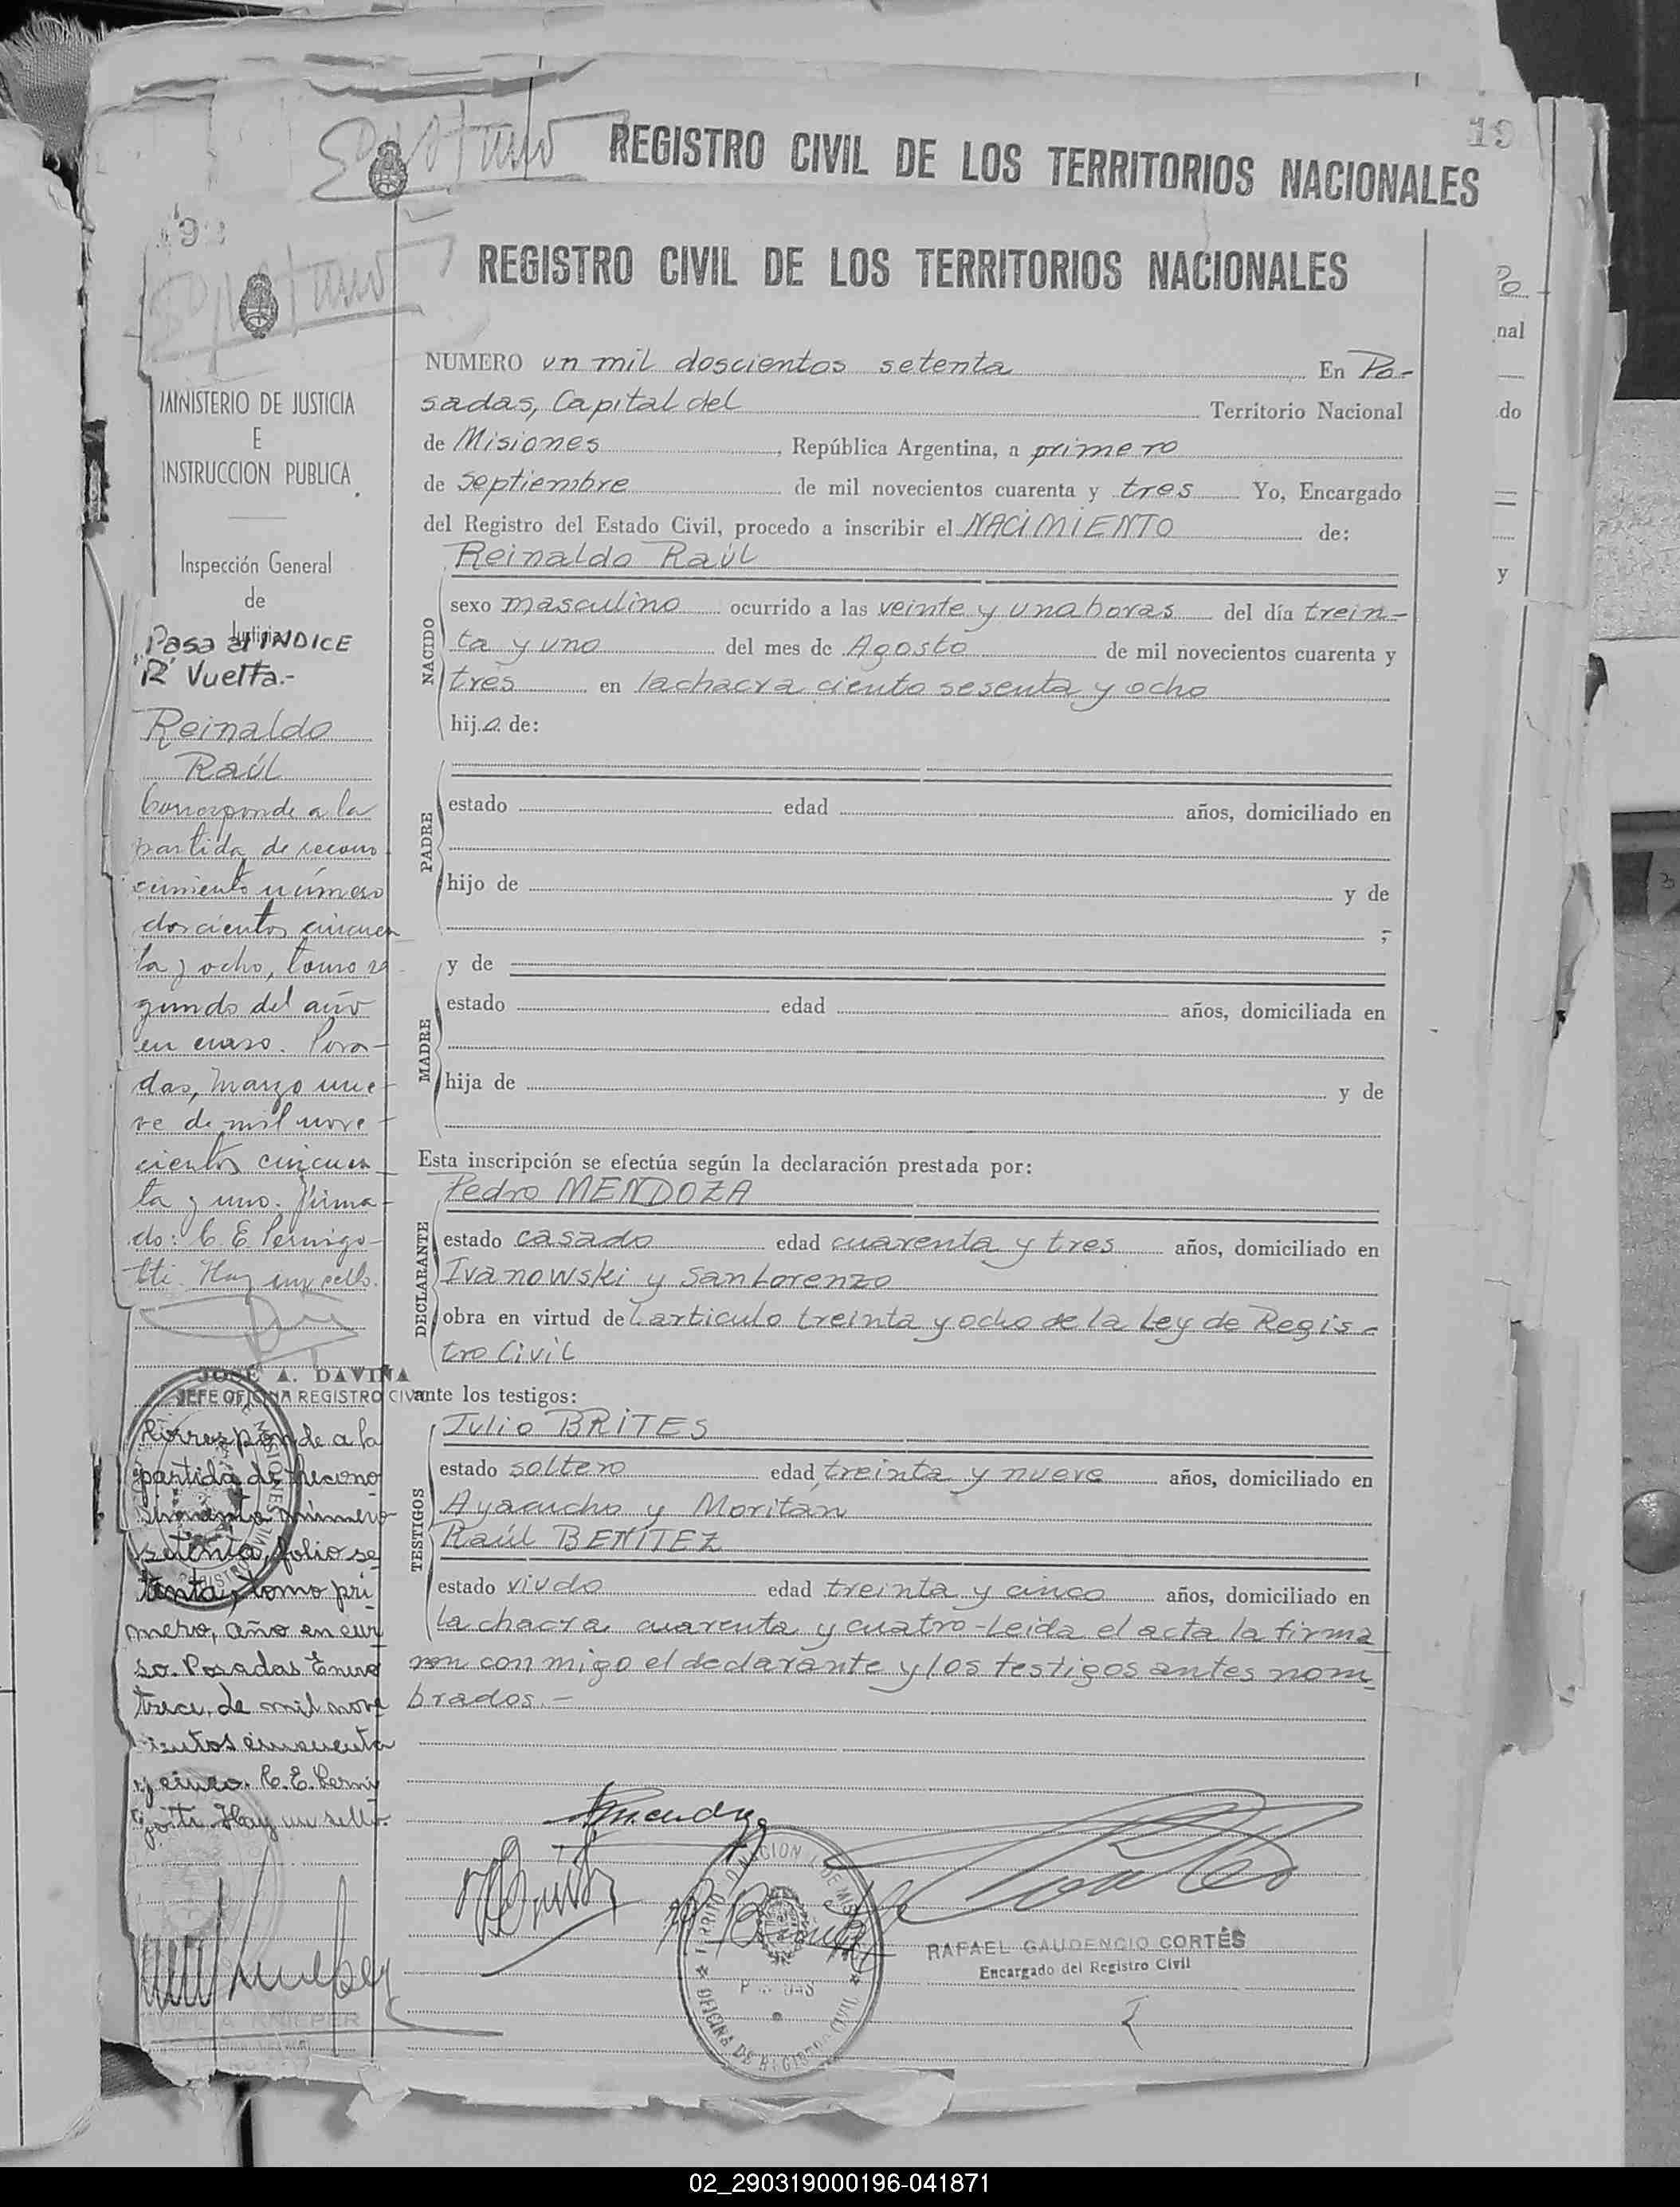 19
REGISTRO CIVIL DE LOS TERRITORIOS NACIONALES
REGISTRO CIVIL DE LOS TERRITORIOS NACIONALES
MINISTERIO DE JUSTICIA
E
INSTRUCCION PUBLICA
Inspección General
de
Justicia
Pasa al INDICE
R' Vuelta.-
Reinaldo
Raúl
Corresponde a la
partida de recono
cimiento número
doscientos cincuen
ta y ocho, tomo se
gundo del año
en curso. Posa-
das, Marzo nue-
ve de mil nove-
cientos cincuen-
ta y uno. Firma-
do: C. E. Pernigo-
tti. Hay un sello.
JOSÉ A. DAVIÑA
JEFE OFICINA REGISTRO CIVIL
Corresponde a la
partida de recono
cimiento número
setenta, folio se
tenta, tomo pri
mero, año en cur
so. Posadas Enero
trece, de mil nove
cientos cincuenta
y cinco. C. E. Perni
gotti. Hay un sello.
KNIEPER
NUMERO un mil doscientos setenta En Po-
sadas, Capital del Territorio Nacional
de Misiones, República Argentina, a primero
de septiembre de mil novecientos cuarenta y tres Yo, Encargado
del Registro del Estado Civil, procedo a inscribir el NACIMIENTO de:
Reinaldo Raúl
NACIDO
sexo masculino ocurrido a las veinte y una horas del día trein-
ta y uno del mes de Agosto de mil novecientos cuarenta y
tres en la chacra ciento sesenta y ocho
hij.o. de:
PADRE
estado edad años, domiciliado en
hijo de y de
;
MADRE
y de
estado edad años, domiciliada en
hija de y de
Esta inscripción se efectúa según la declaración prestada por:
DECLARANTE
Pedro MENDOZA
estado casado edad cuarenta y tres años, domiciliado en
Ivanowski y San Lorenzo
obra en virtud del articulo treinta y ocho de la Ley de Regis-
tro Civil
ante los testigos:
TESTIGOS
Julio BRITES
estado soltero edad treinta y nueve años, domiciliado en
Ayacucho y Moritan
Raúl BENITEZ
estado viudo edad treinta y cinco años, domiciliado en
la chacra cuarenta y cuatro-Leida el acta la firma
ron con migo el declarante y los testigos antes nom
brados.-
OFICINA DE REGISTRO CIVIL
RAFAEL GAUDENCIO CORTÉS
Encargado del Registro Civil
Po
nal
do
y
02_290319000196-041871